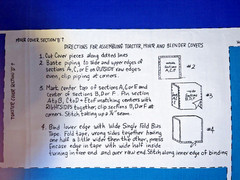 MIXER COVER SECTION B7
DIRECTIONS FOR ASSEMBLING TOASTER, MIXER AND BLENDER COVERS
1. Cut Cover pieces along dotted lines
2. Baste piping to side and upper edges of
sections A, C, or E on OUTSIDE raw edges
even, clip piping at corners.
3. Mark center top of sections A, C or E and
center of sections B, D or F. Pin section
A to B, C to D & E to F matching centers with
RIGHT SIDES together, clip sections B, D or F at
corners. Stitch taking up a 3/8" seam.
4. Bind lower edge with Wide Single Fold Bias
Tape. Fold tape, wrong sides together having
one half a little wider than the other, press.
Encase edge in tape with wide half inside
turning in free end and over raw end. Stitch along inner edge of binding
#2
#3
#4
TOASTER COVER SECTION